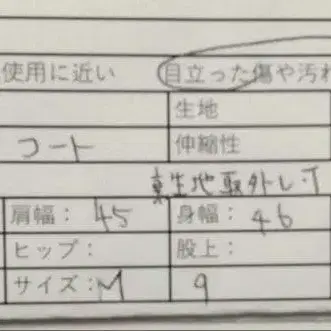 使用に近い 目立った傷や汚れ
生地
コート 伸縮性
生地取外し可
肩幅： 45 身幅： 46
ヒップ： 股上：
サイズ：M 9